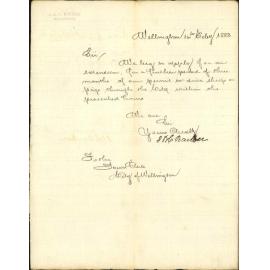 Wellington 14 Feby 1883
Sir,
We beg to apply for an
extension for a further period of three
months of our permit to drive sheep
through the City within the
prescribed hours
We are
Sir
Yours
To the
Town Clerk
City of Wellington